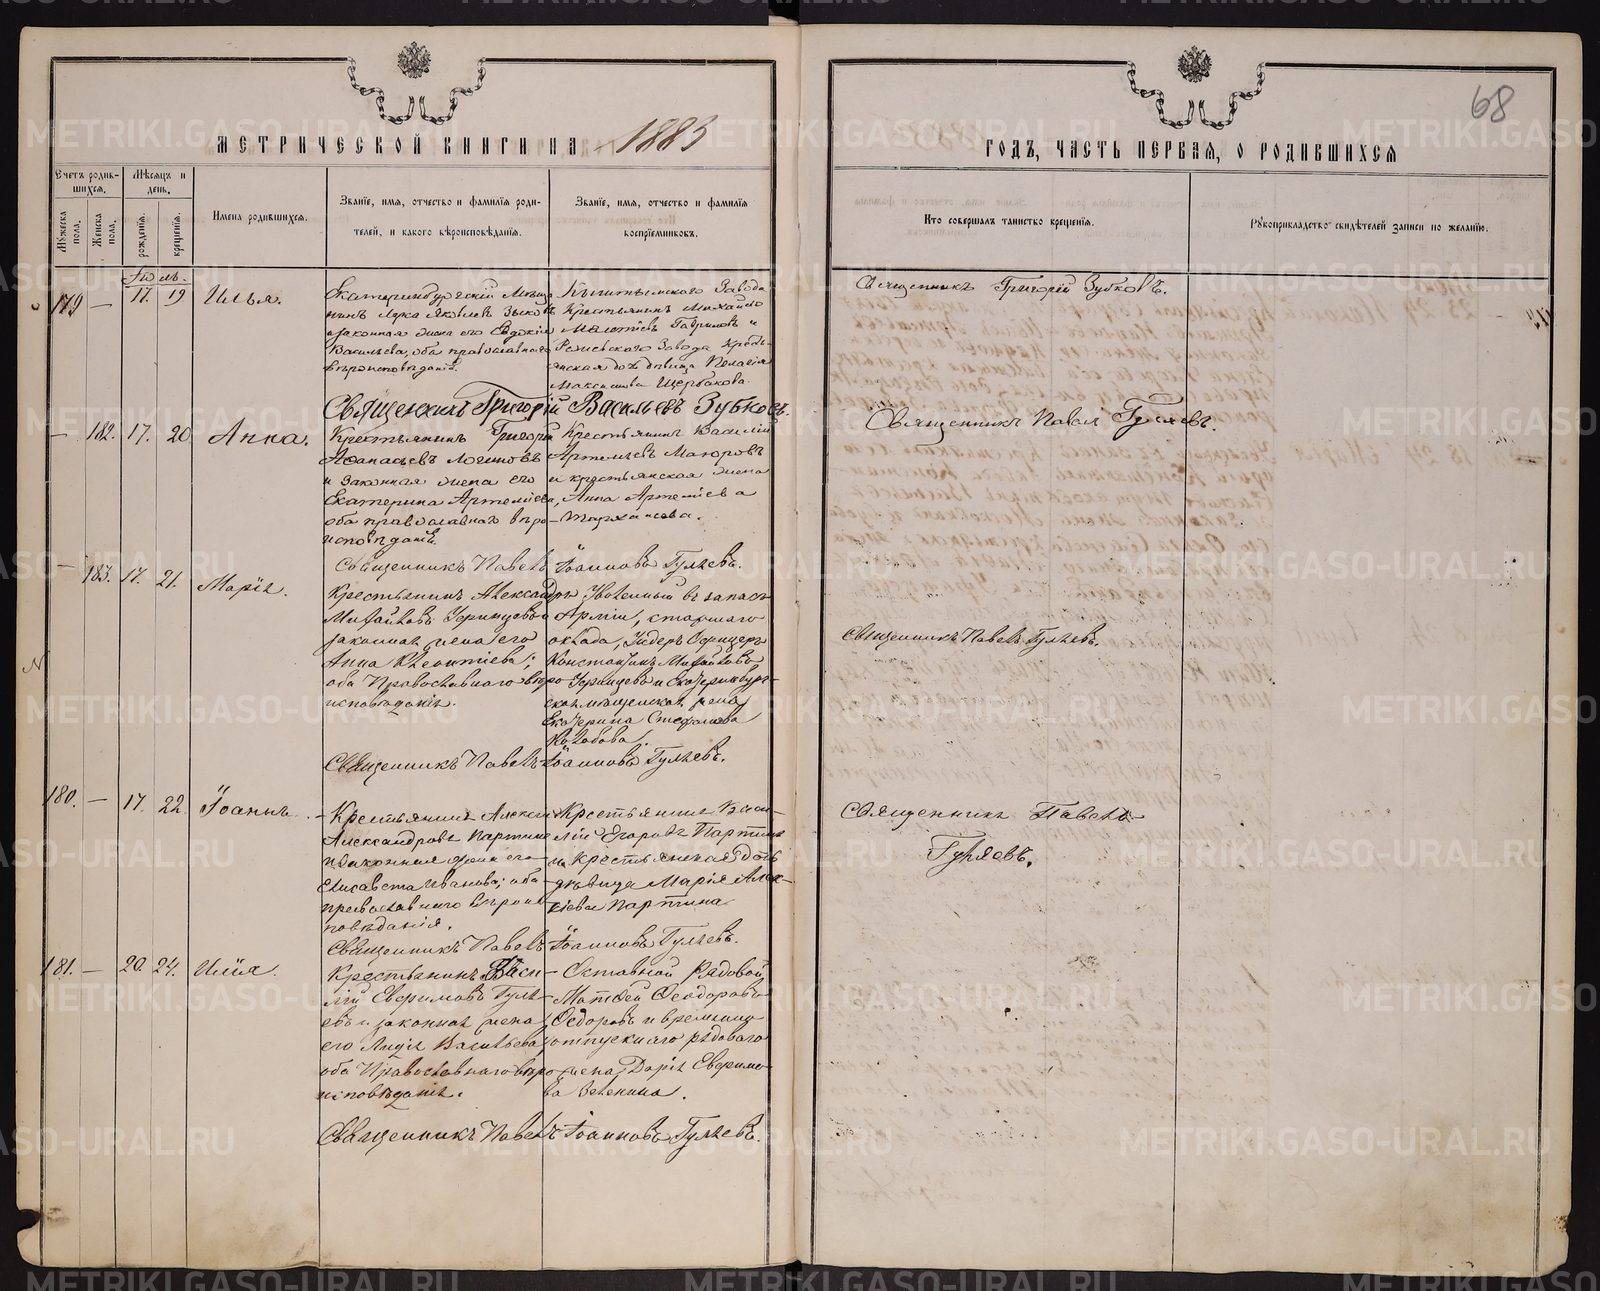 МЕТРИЧЕСКОЙ КНИГИ НА 1883
ГОДЪ, ЧАСТЬ ПЕРВАЯ, О РОДИВШИХСЯ
68
Счетъ родив-
шихся.
Мѣсяцъ и
день.
Мужеска
пола.
Женска
пола.
рожденія.
крещенія.
Имена родившихся.
Званіе, имя, отчество и фамилія роди-
телей, и какого вѣроисповѣданія.
Званіе, имя, отчество и фамилія
воспріемниковъ.
Кто совершалъ таинство крещенія.
Рукоприкладство свидѣтелей записи по желанію.
Іюль.
179 — 17. 19 Илья.
Екатеринбургскій Мѣща-
нинъ Лука Яковлевъ Зыковъ
и законная жена его Евдокія
Васильева, оба православнаго
вѣроисповѣданія.
Кыштымскаго Завода
Крестьянинъ Михайло
Гавриловъ и
Режевскаго Завода кресть-
янская дочь дѣвица Пелагія
Максимова Щербакова.
Священникъ Григорій Зубковъ.
Священникъ Григорій Васильевъ Зубковъ.
— 182. 17. 20. Анна.
Крестьянинъ Григорій
Афанасьевъ Логиновъ
и законная жена его
Екатерина Артеміева,
оба православнаго вѣро-
исповѣданія.
Крестьянинъ Василій
Артемьевъ Маюровъ
и крестьянская жена
Анна Артеміева
Священникъ Павелъ Гуляевъ.
Священникъ Павелъ Іоанновъ Гуляевъ.
— 183. 17. 21. Марія.
Крестьянинъ Александръ
Михайловъ
законная жена его
Анна Леонтіева;
оба Православнаго вѣро-
исповѣданія.
Уволенный въ запасъ
Арміи, старшаго
оклада, Унтеръ Офицеръ
Константинъ Михайловъ
и Екатеринбург-
ская мѣщанская жена
Екатерина Стефанова
Священникъ Павелъ Гуляевъ.
Священникъ Павелъ Іоанновъ Гуляевъ.
180. — 17. 22. Іоаннъ.
Крестьянинъ Алексій
Александровъ Партинъ
и законная жена его
Елисавета Иванова; оба
православнаго вѣроис-
повѣданія.
Крестьянинъ Васи-
лій Егоровъ Партинъ
и Крестьянская дочь
дѣвица Марія Алек-
сіева Партина
Священникъ Павелъ
Гуляевъ.
Священникъ Павелъ Іоанновъ Гуляевъ.
181. — 20. 24. Илія.
Крестьянинъ Васи-
лій Евфимовъ Гуля-
евъ и законная жена
его Лидія Васильева,
оба Православнаго вѣро-
исповѣданія.
Отставной Рядовой
Матфей Феодоровъ
Федоровъ и временно
отпускнаго рядоваго
жена Дарія Евфимо-
ва Зеленина.
Священникъ Павелъ Іоанновъ Гуляевъ.